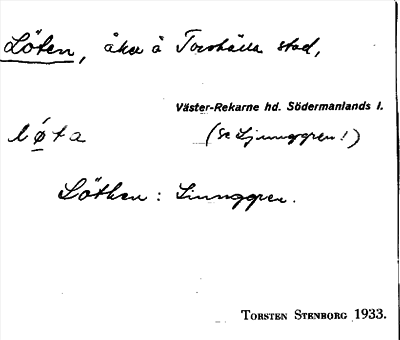 Löten, åker å Torshälla stad,
Väster-Rekarne hd. Södermanlands l.
lǿta (se Ljunggren!)
Löthen: Ljunggren.
Torsten Stenborg 1933.